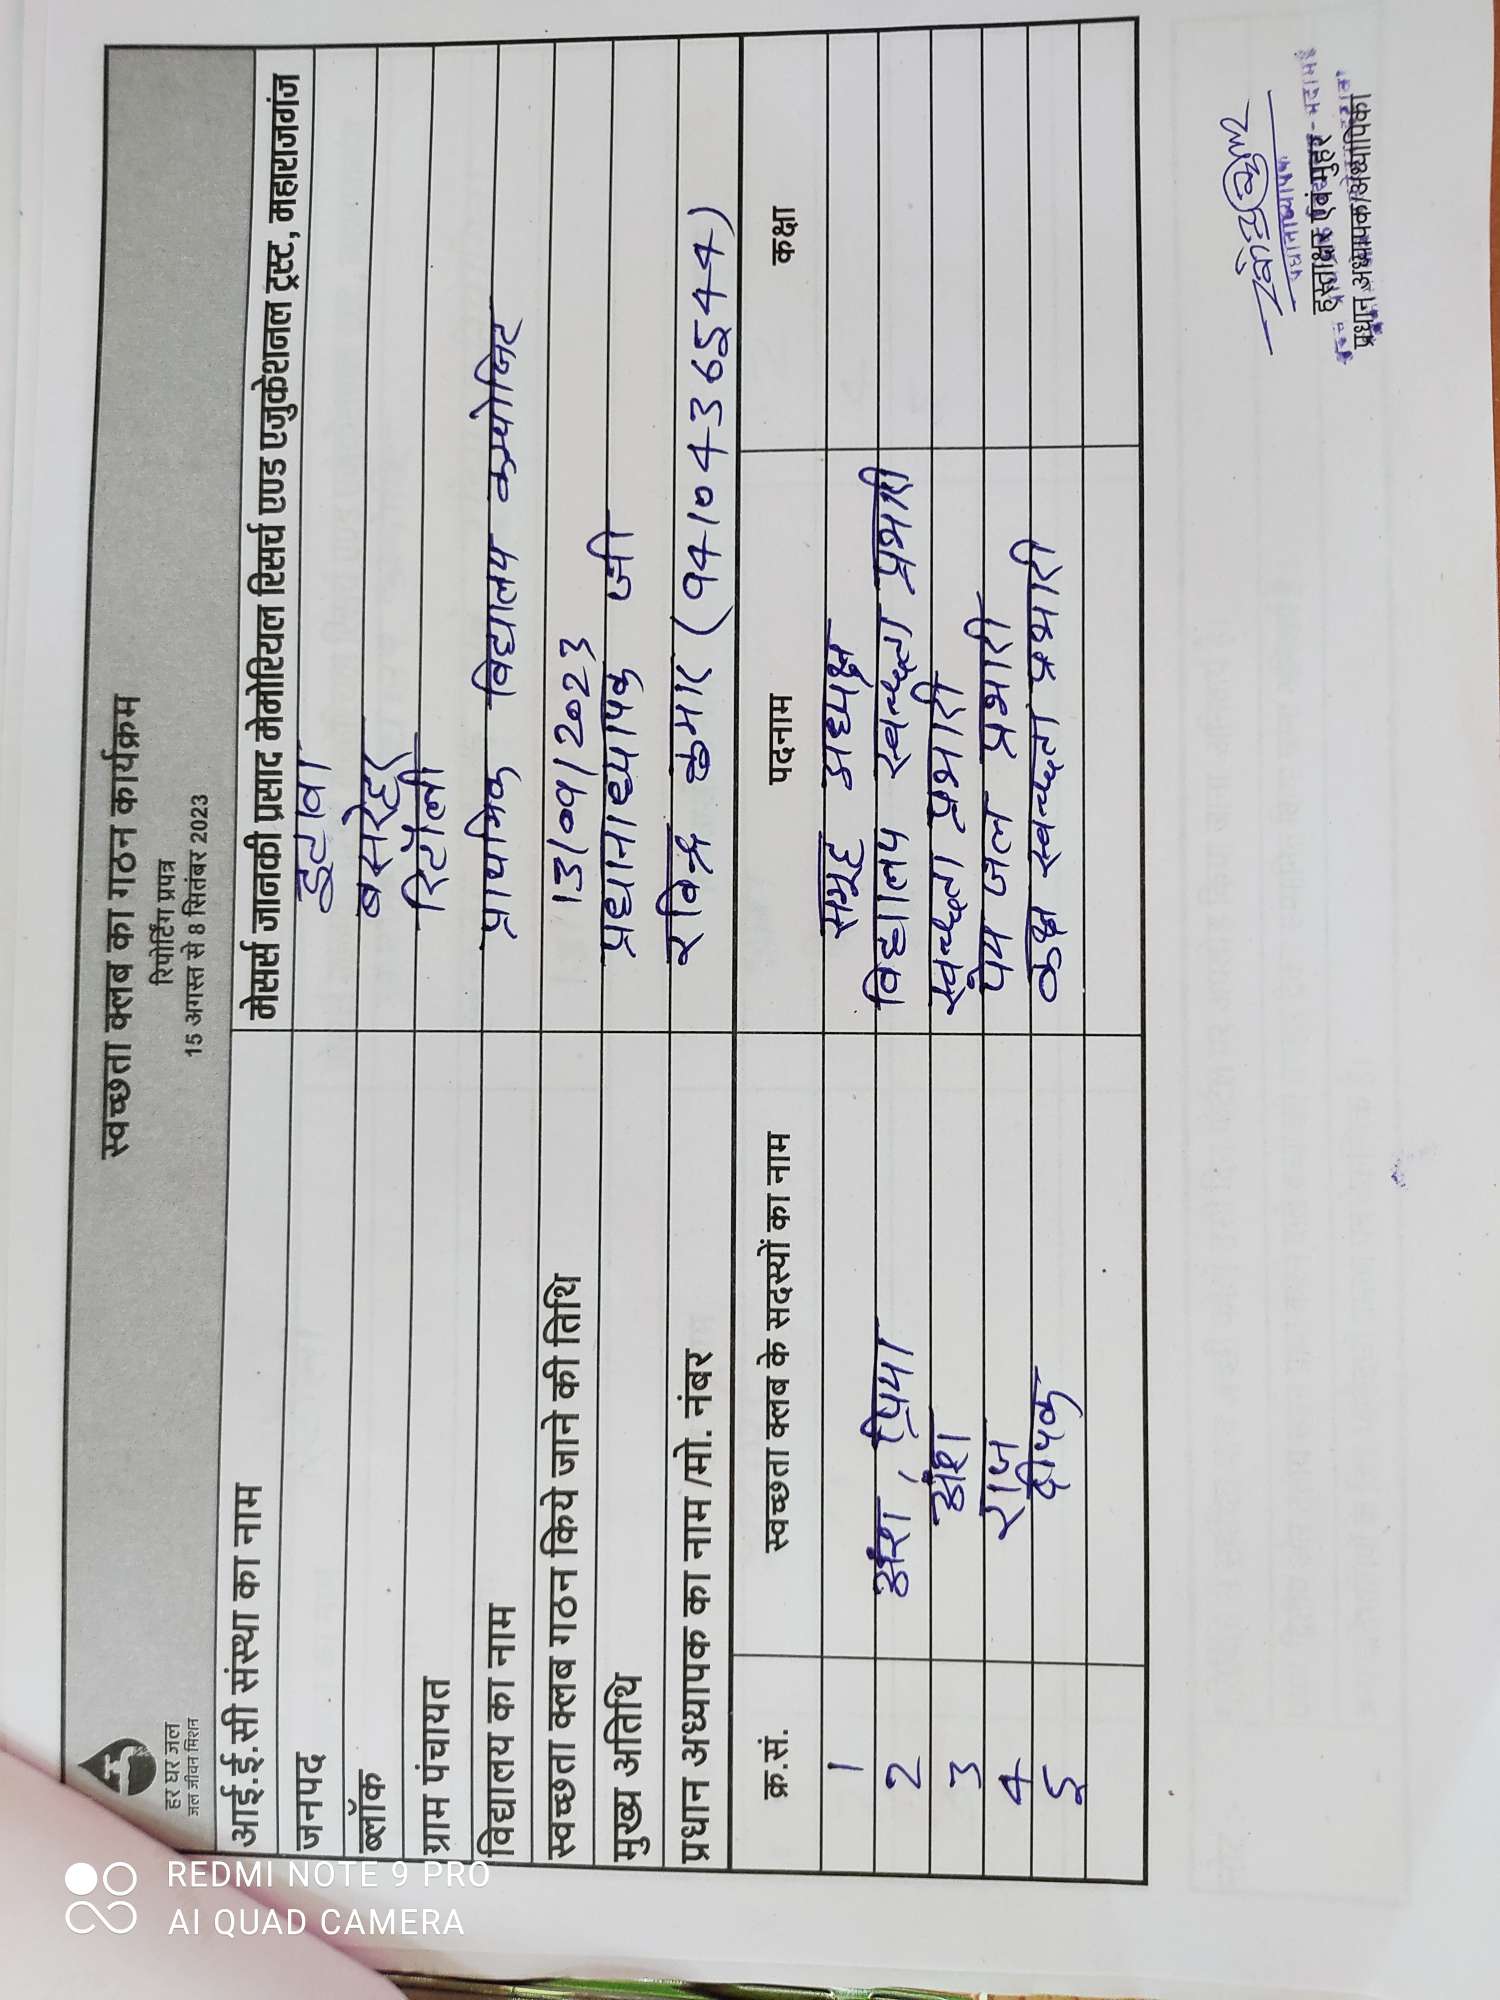 हर घर जल
जल जीवन मिशन
स्वच्छता क्लब का गठन कार्यक्रम
रिपोर्टिंग प्रपत्र
15 अगस्त से 8 सितंबर 2023
आई.ई.सी संस्था का नाम मेसर्स जानकी प्रसाद मेमोरियल रिसर्च एण्ड एजुकेशनल ट्रस्ट, महाराजगंज
जनपद इटावा
ब्लॉक बसरेहर
ग्राम पंचायत रिटौली
विद्यालय का नाम प्राथमिक विद्यालय कम्पोजिट
स्वच्छता क्लब गठन किये जाने की तिथि 13/09/2023
मुख्य अतिथि प्रधानाध्यापक जी
प्रधान अध्यापक का नाम /मो. नंबर रविन्द्र कुमार (9410436544)
क्र.सं. स्वच्छता क्लब के सदस्यों का नाम पदनाम कक्षा
1 समूह अध्यक्ष
2 अंश, प्रिया विद्यालय स्वच्छता प्रभारी
3 अंश स्वच्छता प्रभारी
4 राज पेय जल प्रभारी
5 दीपक कक्ष स्वच्छता प्रभारी
प्रधानाध्यापक
हस्ताक्षर एवं मुहर
प्रधान अध्यापक/अध्यापिका
REDMI NOTE 9 PRO
AI QUAD CAMERA